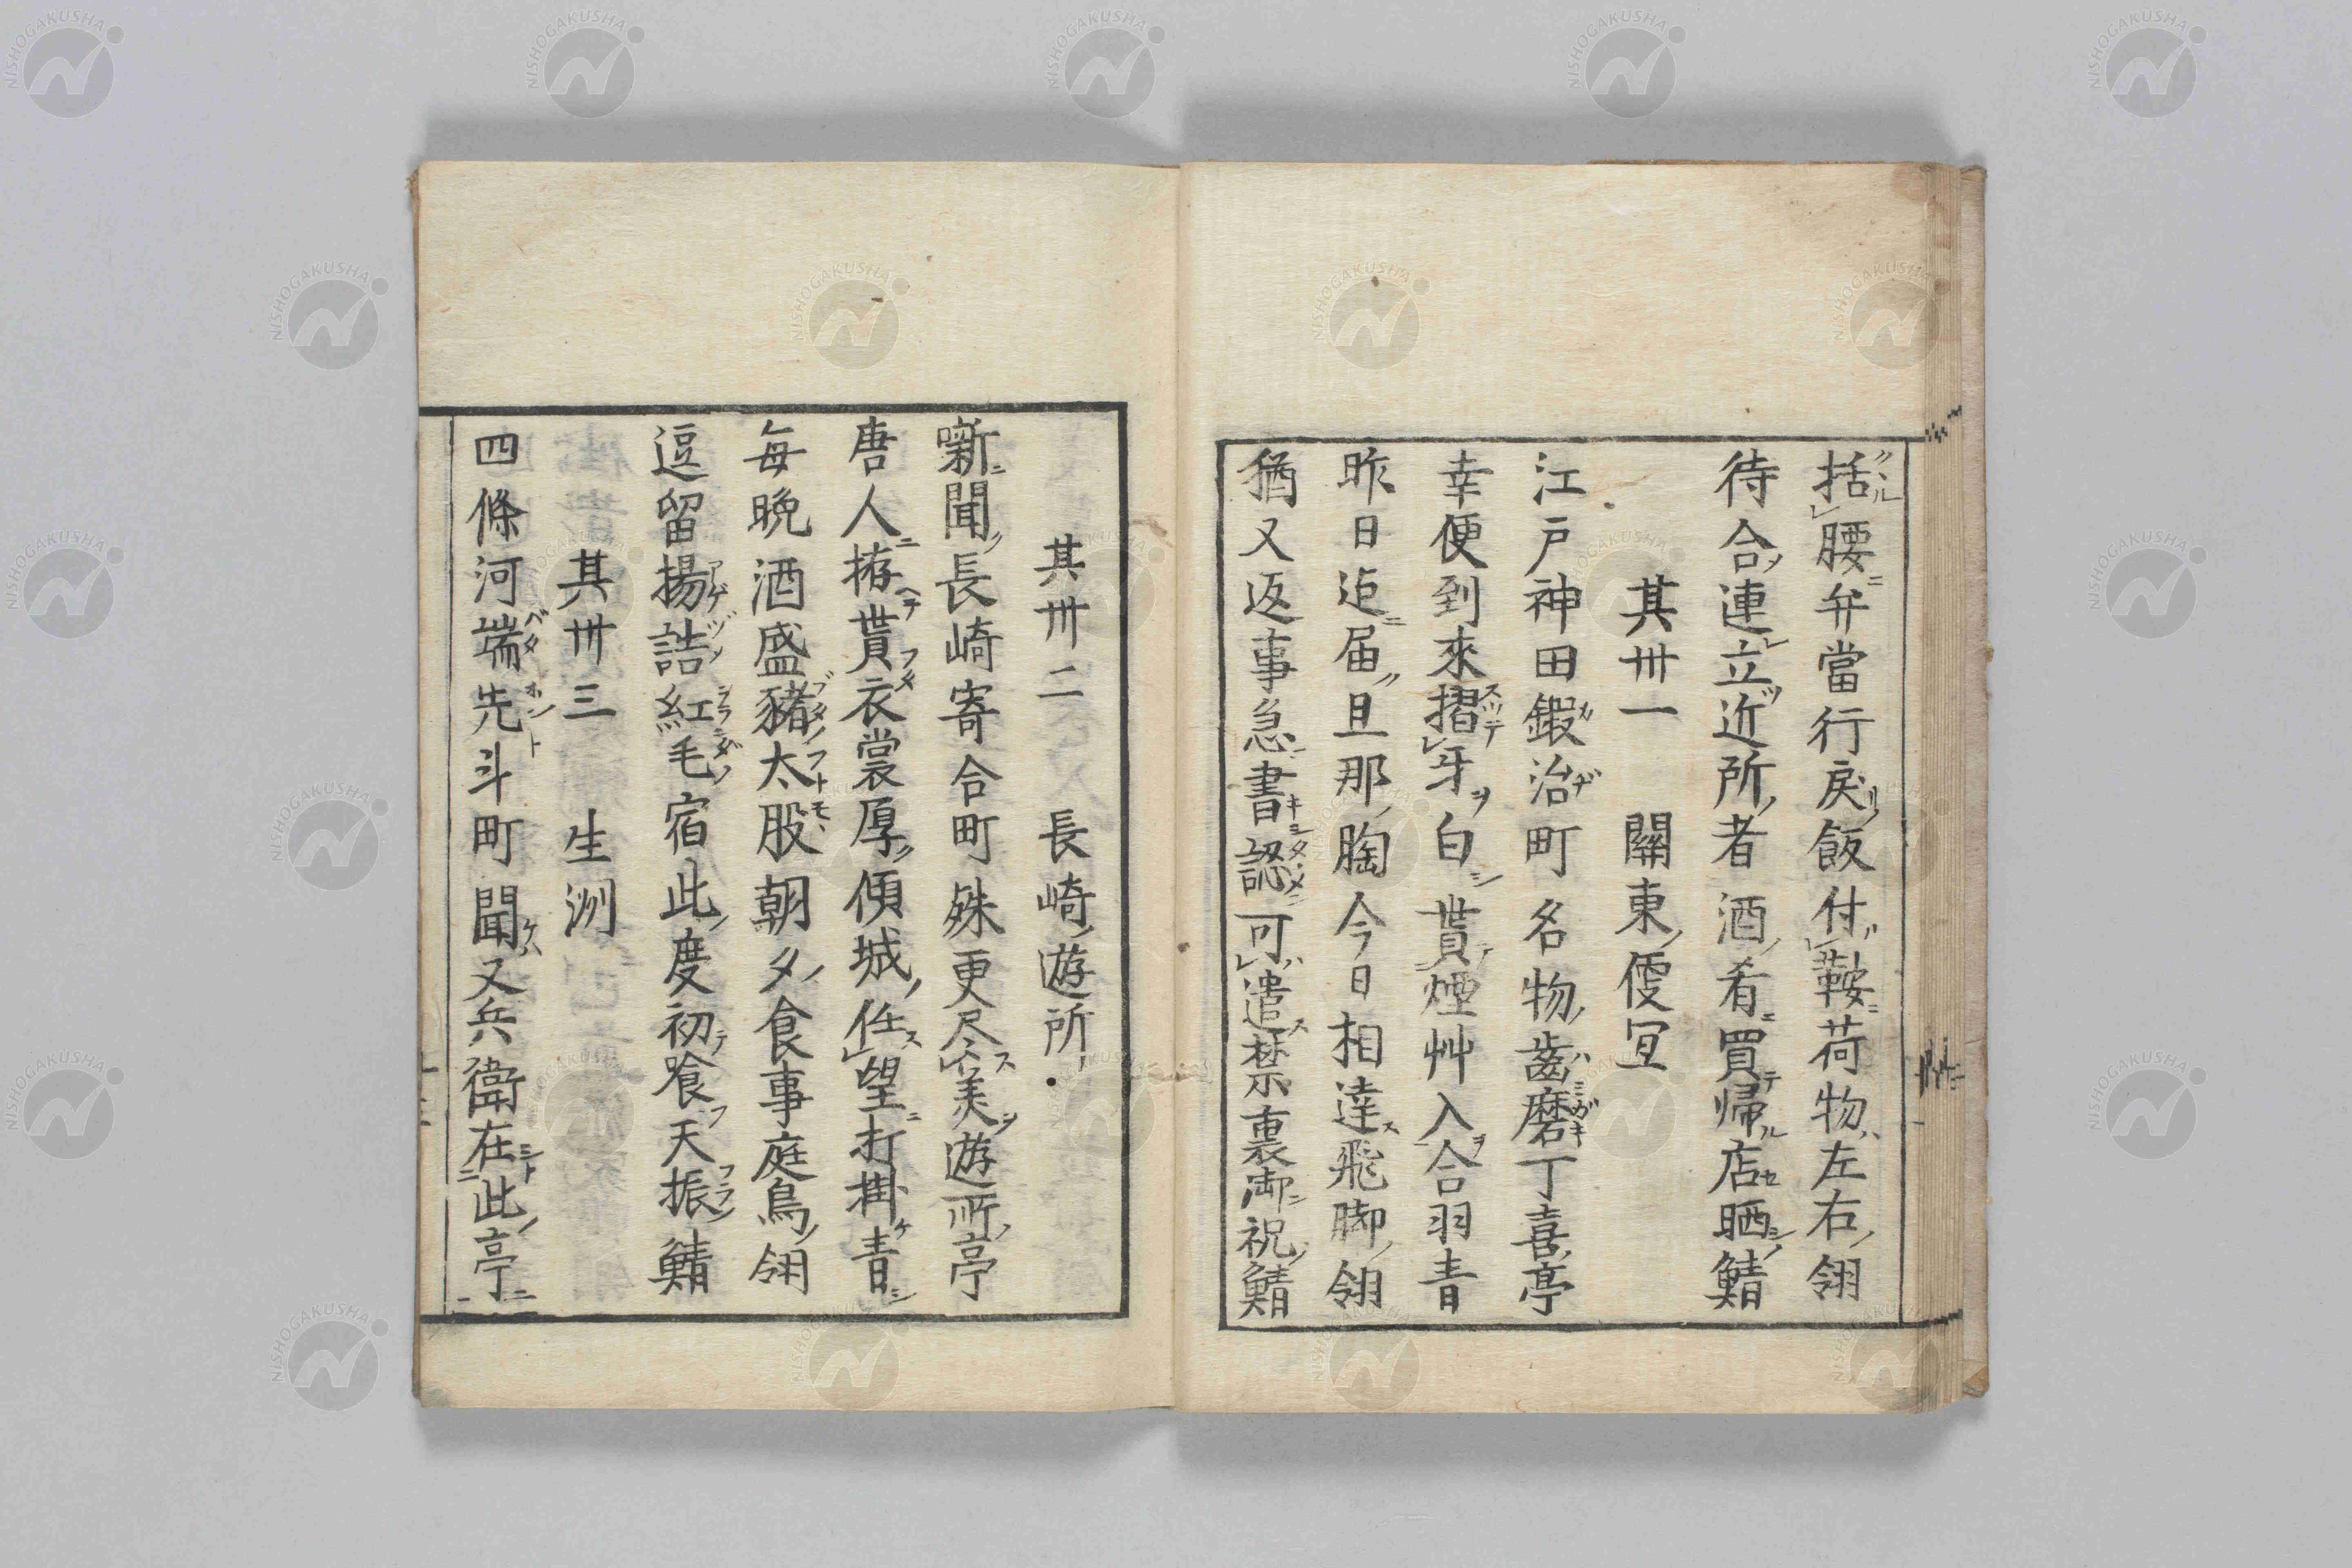 括腰弁當行戻飯付鞍荷物左右翎
待合連立近所者酒肴買帰店晒鯖
其卅一 關東便宜
江戸神田鍛冶町名物齒磨丁喜亭
幸便到來摺牙白貰煙艸入合羽青
昨日迠届旦那胸今日相達飛脚翎
猶又返事急書認可遣禁裏御祝鯖
其卅二 長崎遊所
噺聞長崎寄合町殊更尽美遊所亭
唐人拵貰衣裳厚傾城任望打掛青
毎晩酒盛豬太股朝夕食事庭鳥翎
逗留揚詰紅毛宿此度初飡天振鯖
其卅三 生洲
四條河端先斗町聞又兵衛在此亭
NISHOGAKUSHA